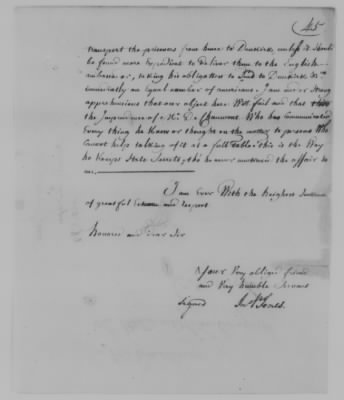 45
transport the prisoners from hence to Dunkirk, unless it should
be found more Expedient to deliver them to the English
taking his obligation to Send to Dunkirk
immediately an equal number of americans. I am under strong
apprehensions that our object here Will fail and that
the Imprudence of Mr De Chaumont Who has Communicated
Every thing he Knew or thought on the matter to persons Who
Cannot help talking of it at a full table this is the Way
he Keeps State Secrets, tho he never mentioned the affair to
me.
I am Ever With the heighest Sentiments
of greatful Esteem and respect
Honored and dear Sir
Your Very obliged friend
and Very humble Servant
Signed Jno P Jones.